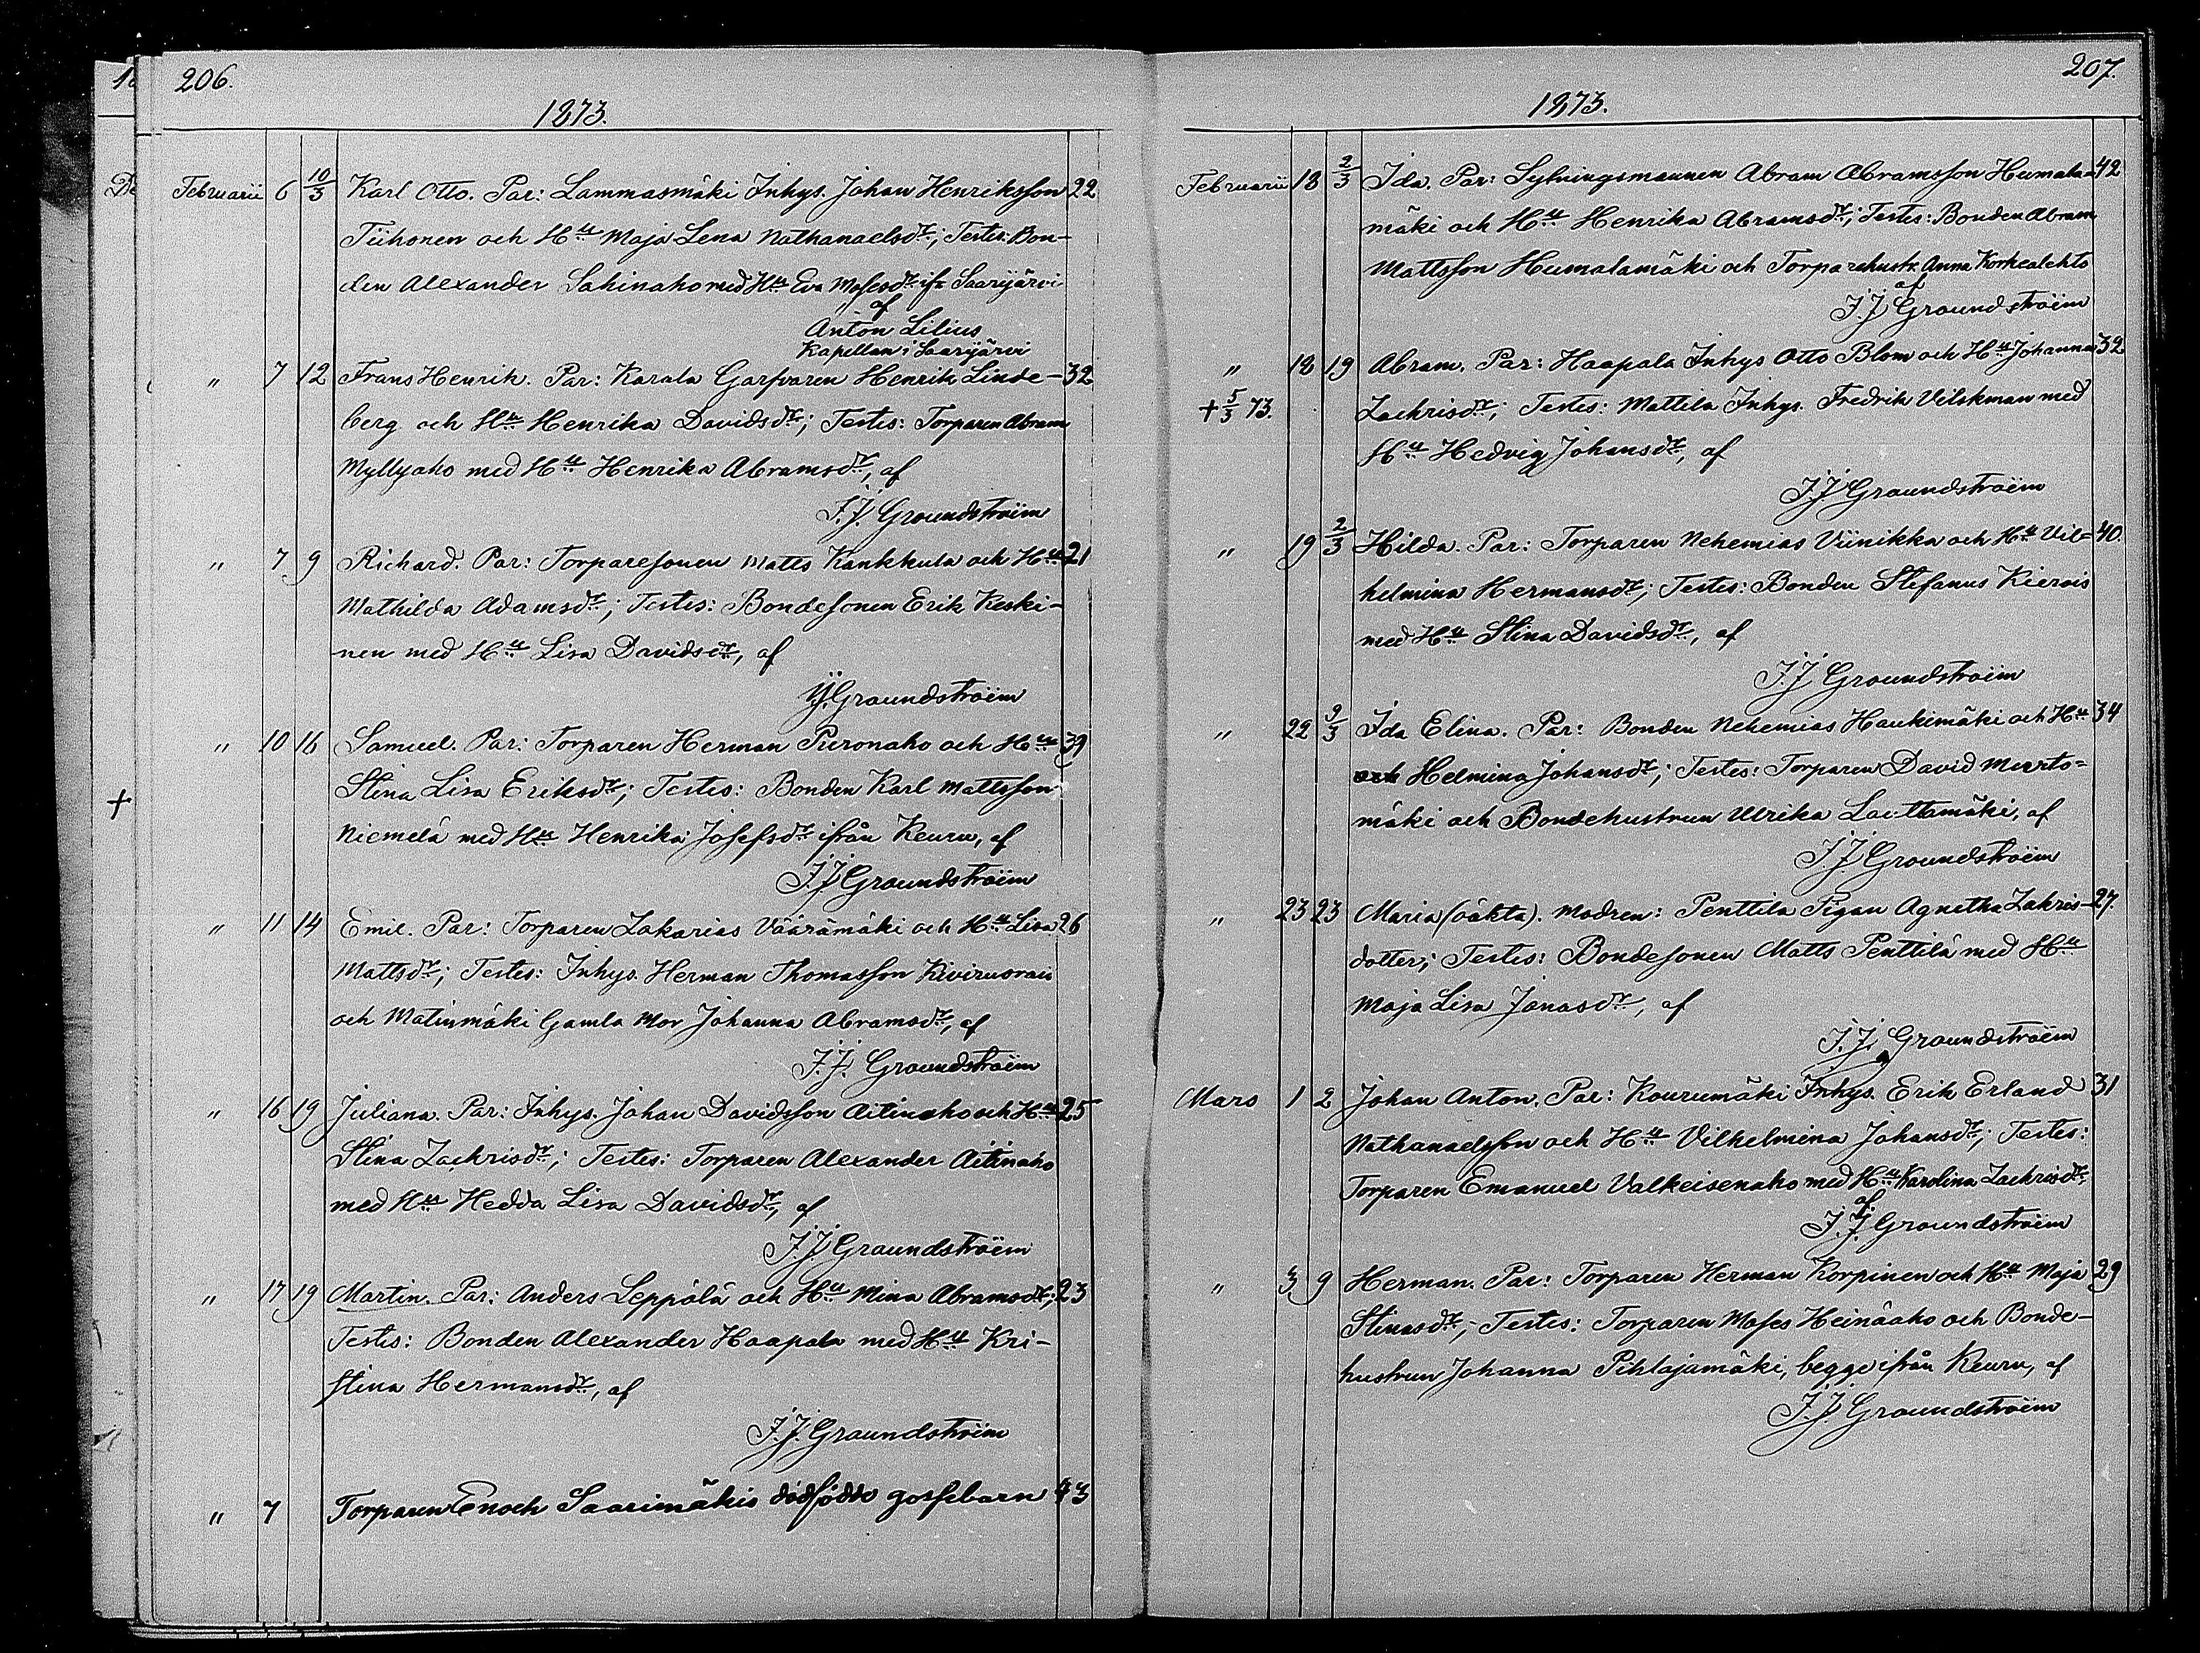 206.
1873.
Februarii 6 10/3 Karl Otto. Par: Lammasmäki Inhys. Johan Henriksson 22
Tiihonen och H:u Maja Lena Nathanaelsdr; Testes: Bon-
den Alexander Sahinaho med H:u Eva Mosesdr ifr Saarijärvi
af
Anton Lilius
Kapellan i Saarijärvi
" 7 12 Frans Henrik. Par: Karala Garfvaren Henrik Linde- 32
berg och H:u Henrika Davidsdr; Testes: Torparen Abram
Myllyaho med H:u Henrika Abramsdr, af
J.J. Groundstroëm
" 7 9 Richard. Par: Torparesonen Matts Kankkula och H:u 21
Mathilda Adamsdr; Testes: Bondesonen Erik Keski-
nen med H:u Lisa Davidsdr, af
J.J. Groundstroëm
" 10 16 Samuel. Par: Torparen Herman Puronaho och H:u 39
Stina Lisa Eriksdr; Testes: Bonden Karl Mattsson
Niemelä med H:u Henrika Josefsdr ifrån Keuru, af
J.J. Groundstroëm
" 11 14 Emil. Par: Torparen Zakarias Väärämäki och H:u Lisa 26
Mattsdr; Testes: Inhys. Herman Thomasson Kivivuorais
och Matinmäki Gamla Mor Johanna Abramsdr, af
J.J. Groundstroëm
" 16 19 Juliana. Par: Inhys. Johan Davidsson Aitinaho och H:u 25
Stina Zachrisdr; Testes: Torparen Alexander Aitinaho
med H:u Hedda Lisa Davidsdr, af
J.J. Groundstroëm
" 17 19 Martin. Par: Anders Leppälä och H:u Mina Abramsdr; 23
Testes: Bonden Alexander Haapala med H:u Kri-
stina Hermansdr, af
J.J. Groundstroëm
" 7 Torparen Enoch Saarimäkis dödfödde gossebarn 43
207.
1873.
Februarii 18 2/3 Ida. Par: Sytningsmannen Abram Abramsson Humala- 42
mäki och H:u Henrika Abramsdr; Testes: Bonden Abram
Mattsson Humalamäki och Torparehustr. Anna Korkealehto
af
J.J. Groundstroëm
" 18 19 Abram. Par: Haapala Inhys Otto Blom och H:u Johanna 32
+ 5/3 73. Zachrisdr; Testes: Mattila Inhys. Fredrik Vilskman med
H:u Hedvig Johansdr, af
J.J. Groundstroëm
" 19 2/3 Hilda. Par: Torparen Nehemias Viinikka och H:u Vil= 40.
helmina Hermansdr; Testes: Bonden Stefanus Kierois
med H:u Stina Davidsdr, af
J.J. Groundstroëm
" 22 9/3 Ida Elina. Par: Bonden Nehemias Haukimäki och H:u 34
och Helmina Johansdr; Testes: Torparen David Murto=
mäki och Bondehustrun Ulrika Lauttamäki, af
J.J. Groundstroëm
" 23 23 Maria (oäkta). Modren: Penttilä Pigan Agnetha Zakris- 27.
dotter; Testes: Bondesonen Matts Penttilä med H:u
Maja Lisa Jonasdr, af
J.J. Groundstroëm
Mars 1 2 Johan Anton. Par: Kourumäki Inhys. Erik Erland 31
Nathanaelsson och H:u Vilhelmina Johansdr; Testes:
Torparen Emanuel Valkeisenaho med H:u Karolina Zachrisdr
af
J.J. Groundstroëm
" 3 9 Herman. Par: Torparen Herman Korpinen och H:u Maja 29
Stinasdr; Testes: Torparen Moses Heinäaho och Bonde-
hustrun Johanna Pihlajamäki, begge ifrån Keuru, af
J.J. Groundstroëm